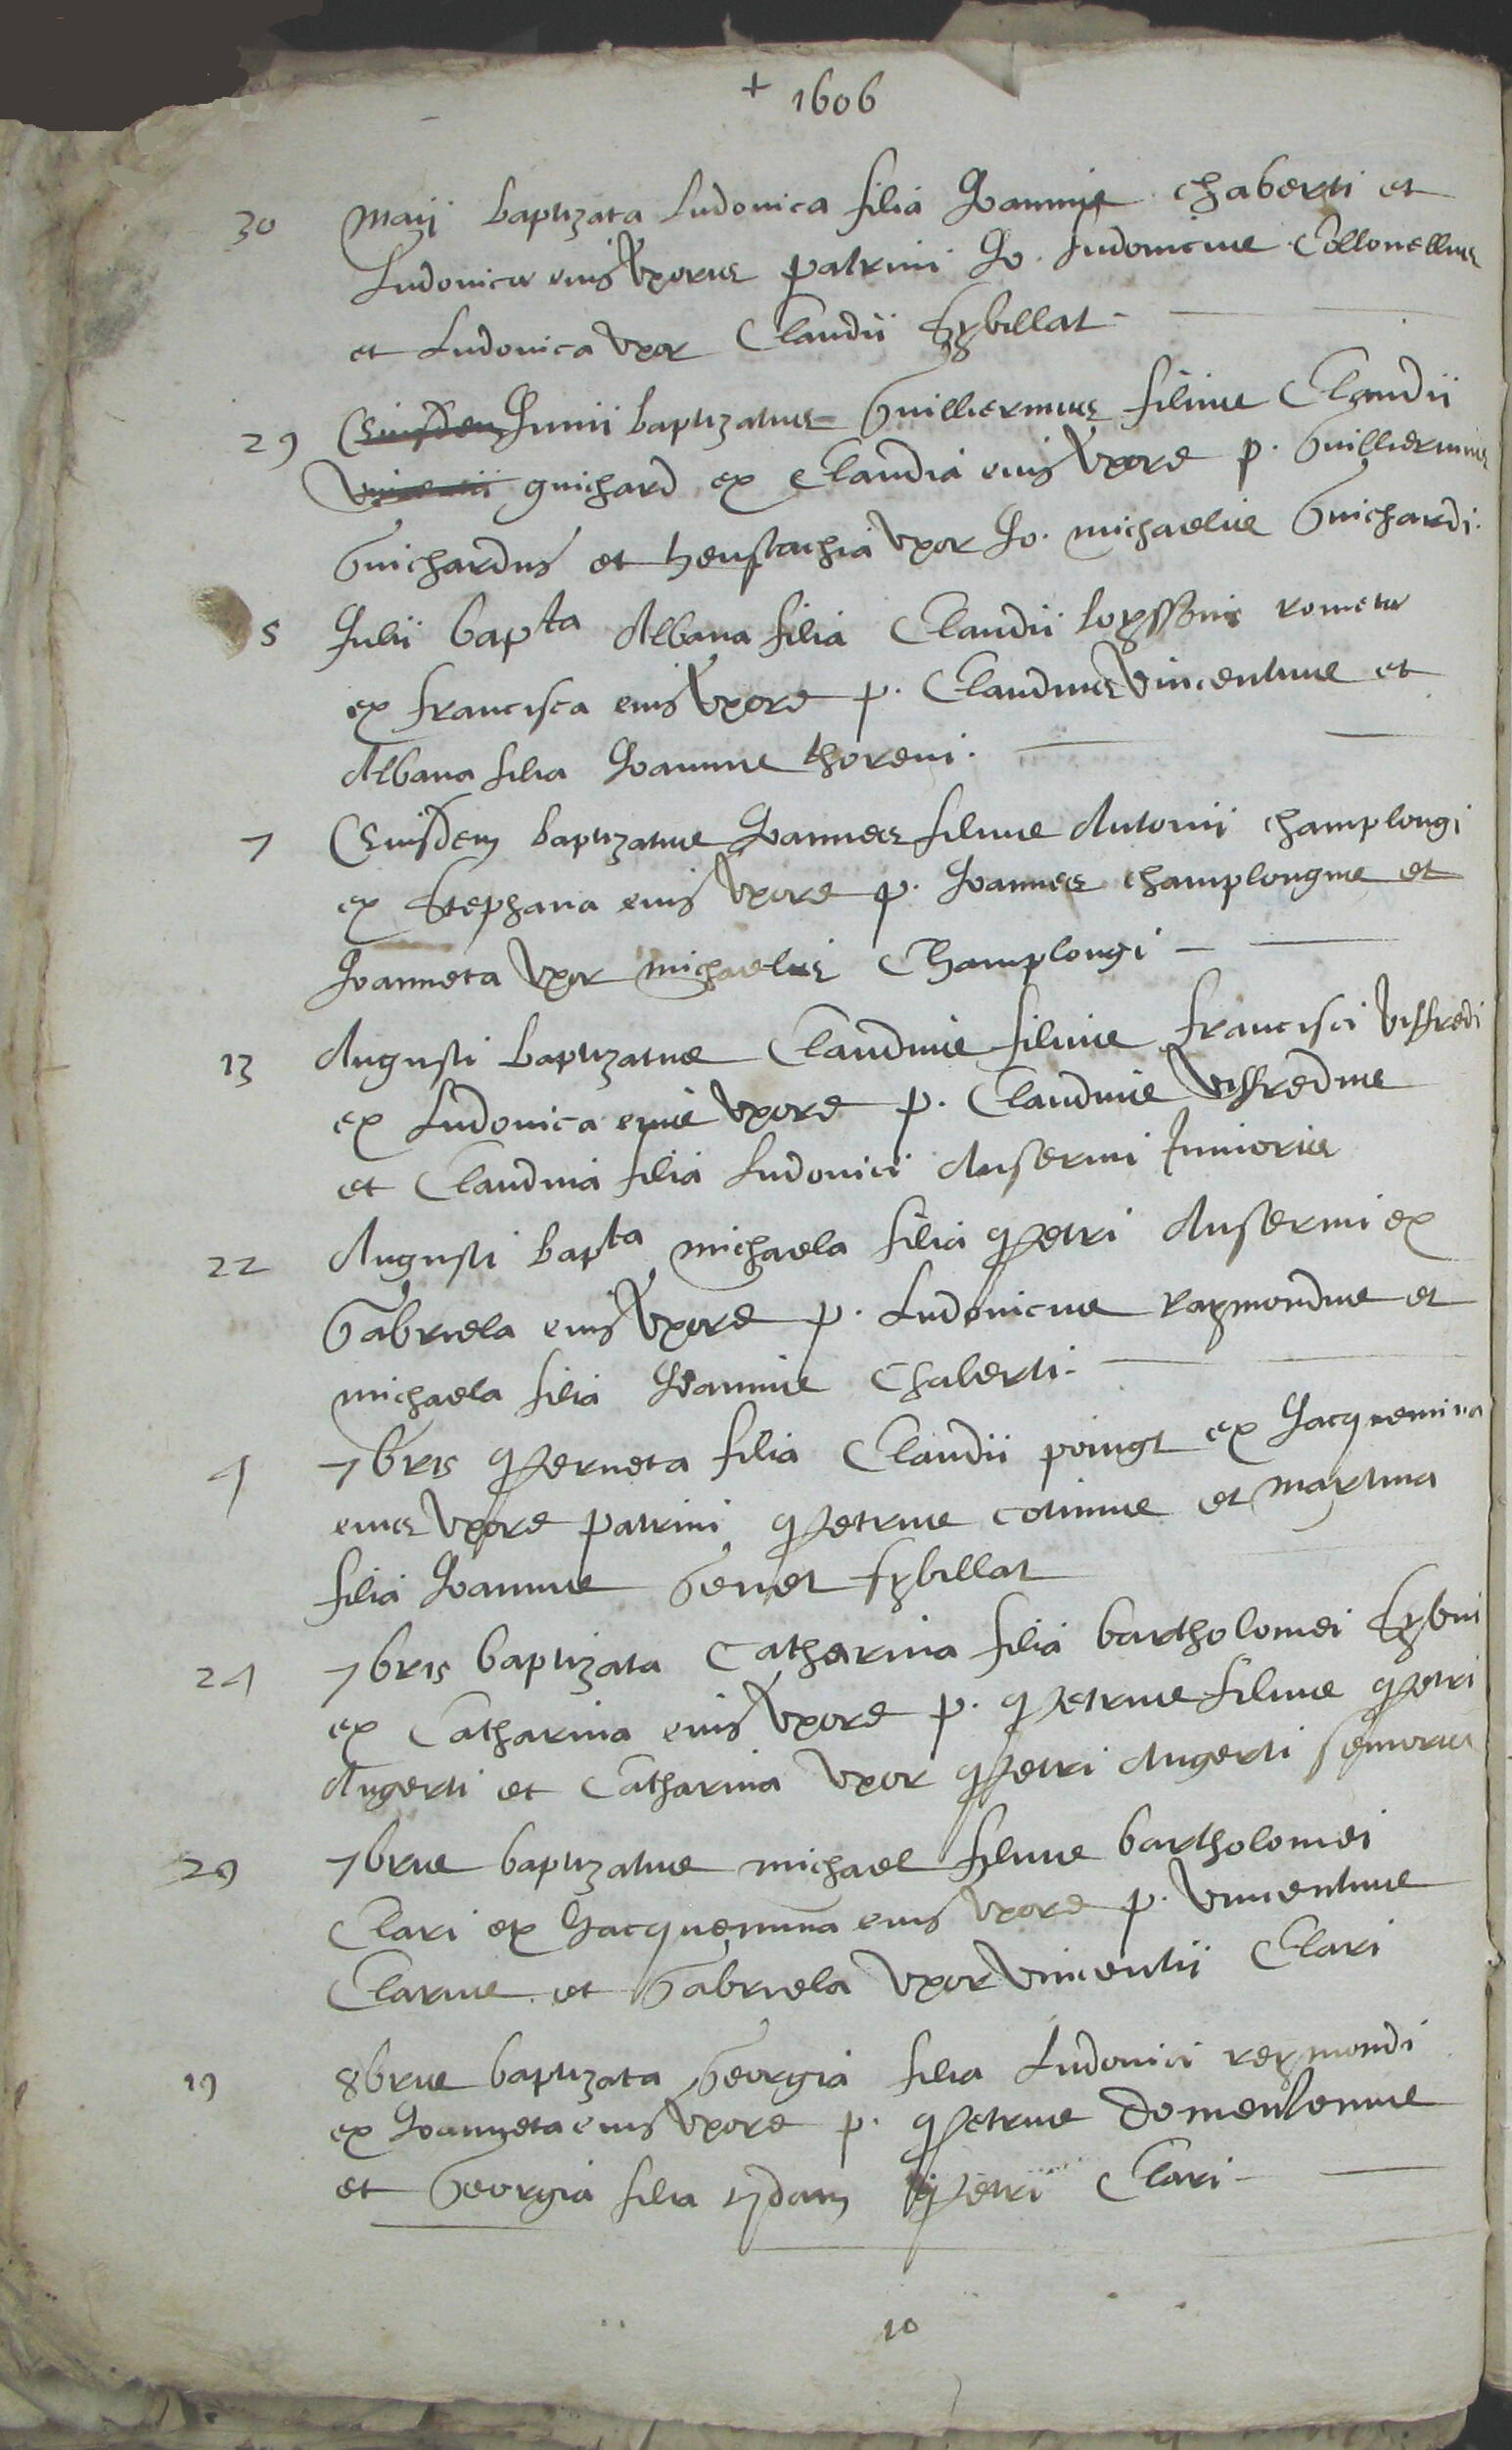 + 1606
30 Maij baptizata Ludovica filia Joannis Chaberti et
Ludovicæ eius Uxoris patrini Jo. Ludovicus Collonellus
et Ludovica Uxor Claudii Sybillat
29 Eiusdem Junii baptizatus Guilliermus filius Claudii
Vincentii guichard ex Claudia eius Uxore p. Guilliermus
Guichardus et heustachia Uxor Jo. michaelis Guichardi.
5 Julii bapta Albana filia Claudii rometæ
ex francisca eius Uxore p. Claudius Vincentius et
Albana filia Joannis thoreni.
7 Eiusdem baptizatus Joannes filius Antonii champlongi
ex Stephana eius Uxore p. Joannes champlongus et
Joanneta Uxor michaelis Champlongi
13 Augusti baptizatus Claudius filius francisci Viffredi
ex Ludovica eius Uxore p. Claudius Viffredus
et Claudia filia Ludovici Ansermi Junioris
22 Augusti bapta michaela filia Petri Ansermi ex
Gabriela eius Uxore p. Ludovicus raymondus et
michaela filia Joannis Chaberti.
4 7bris Perneta filia Claudii poingt ex Jacquemina
eius Uxore patrini Petrus cotinus et martina
filia Joannis Genet sybillat
24 7bris baptizata Catharina filia bartholomei
ex Catharina eius Uxore p. Petrus filius Petri
Angerti et Catharina Uxor Petri Angerti senioris
29 7bris baptizatus michael filius bartholomei
Clari ex Jacquemina eius Uxore p. Vincentius
Clarus et Gabriela Uxor Vincentii Clari
19 8bris baptizata Georgia filia Ludovici reymondi
ex Joanneta eius Uxore p. Petrus
et Georgia filia qdam Petri Clari
10